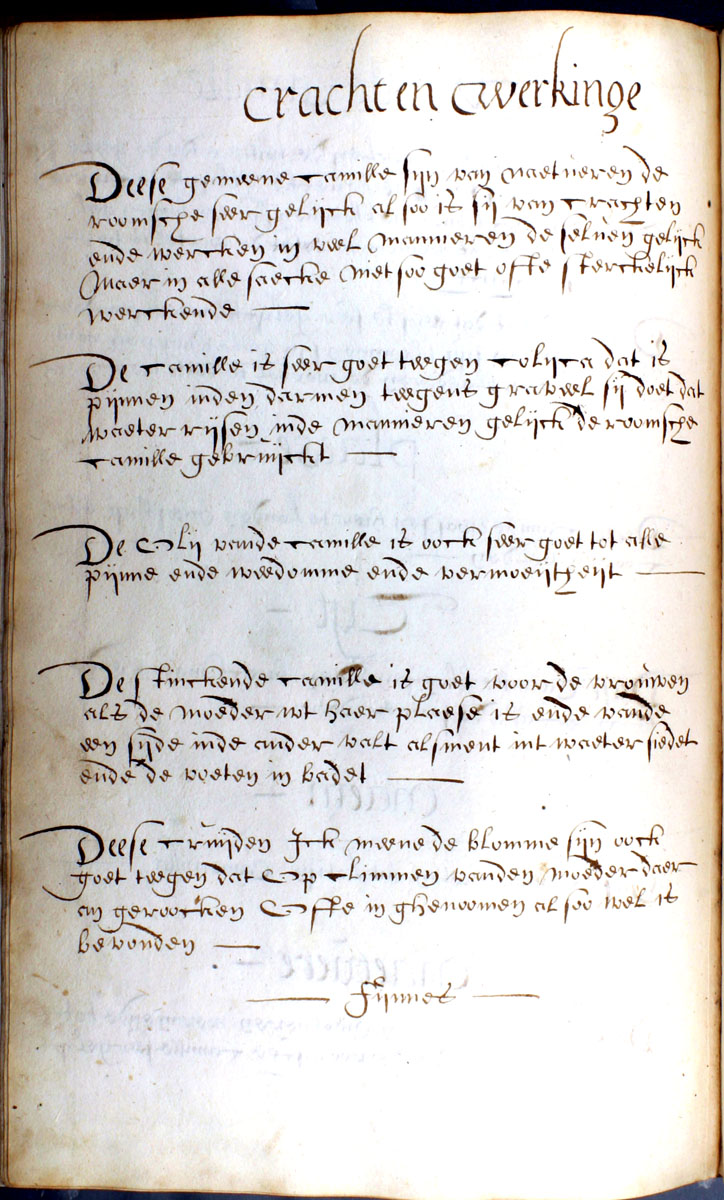 Cracht en Werkinge
Deese gemeene Camille sijn van naetueren de
roomsche seer gelijck al soo is sij van Crachten
ende wercken in veel mannieren de selven gelijck
Maer in alle saecke niet soo goet ofte sterckelijck
werckende
De Camille is seer goet teegen Colijca dat is
pijnnen inden darmen teegens graveel sij doet dat
waeter rijsen inde manneren gelijck de roomsche
Camille gebruijckt
De Olij vande Camille is oock seer goet tot alle
pijnne ende weedomme ende vermoeijtheijt
De stinckende Camille is goet voor de vrouwen
als de moeder wt haer plaese is ende vande
een sijde inde ander valt alsment int waeter siedet
ende de voeten in badet
Deese Cruijden Ick meene de blomme sijn oock
goet teegen dat Op Climmen vanden moeder daer
an geroocken Ofte in ghenoomen al soo wel is
bevonden
Fijnnes